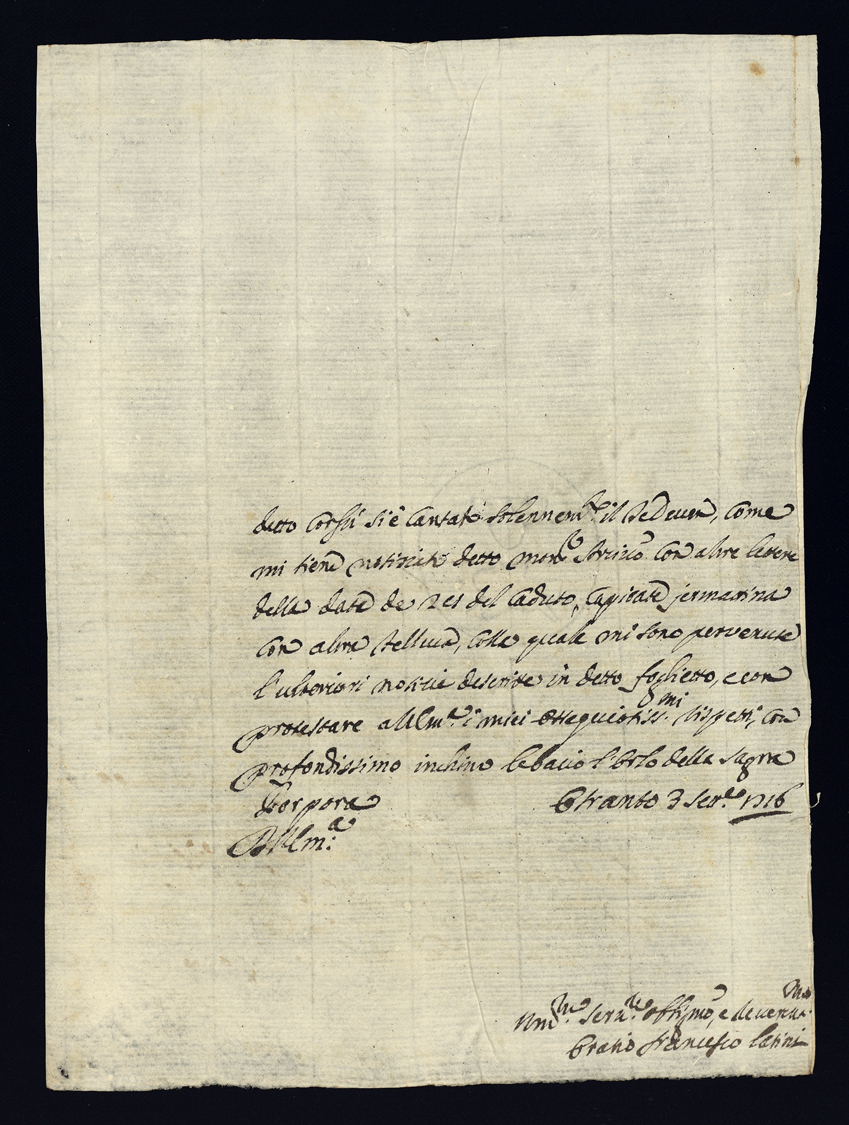 detto Corfù si è Cantato solennem.te il TeDeum, Come
mi tiene notiziato detto mon.r Con altre lettere
della data de 21 del Caduto, Capitate jermatina
con altra, colla quale mi sono pervenute
l'ulteriori notizie descritte in detto foglietto, e con
protestare all m.a i miei ossequiosiss.mi rispetti, con
profondissimo inchino le bacio l'Orlo della Sagra
Porpora Otranto 3 Se.re 1716
D m.a
Um.mo Ser.re Oblig.mo, e de.mo
Oratio Francesco Latini